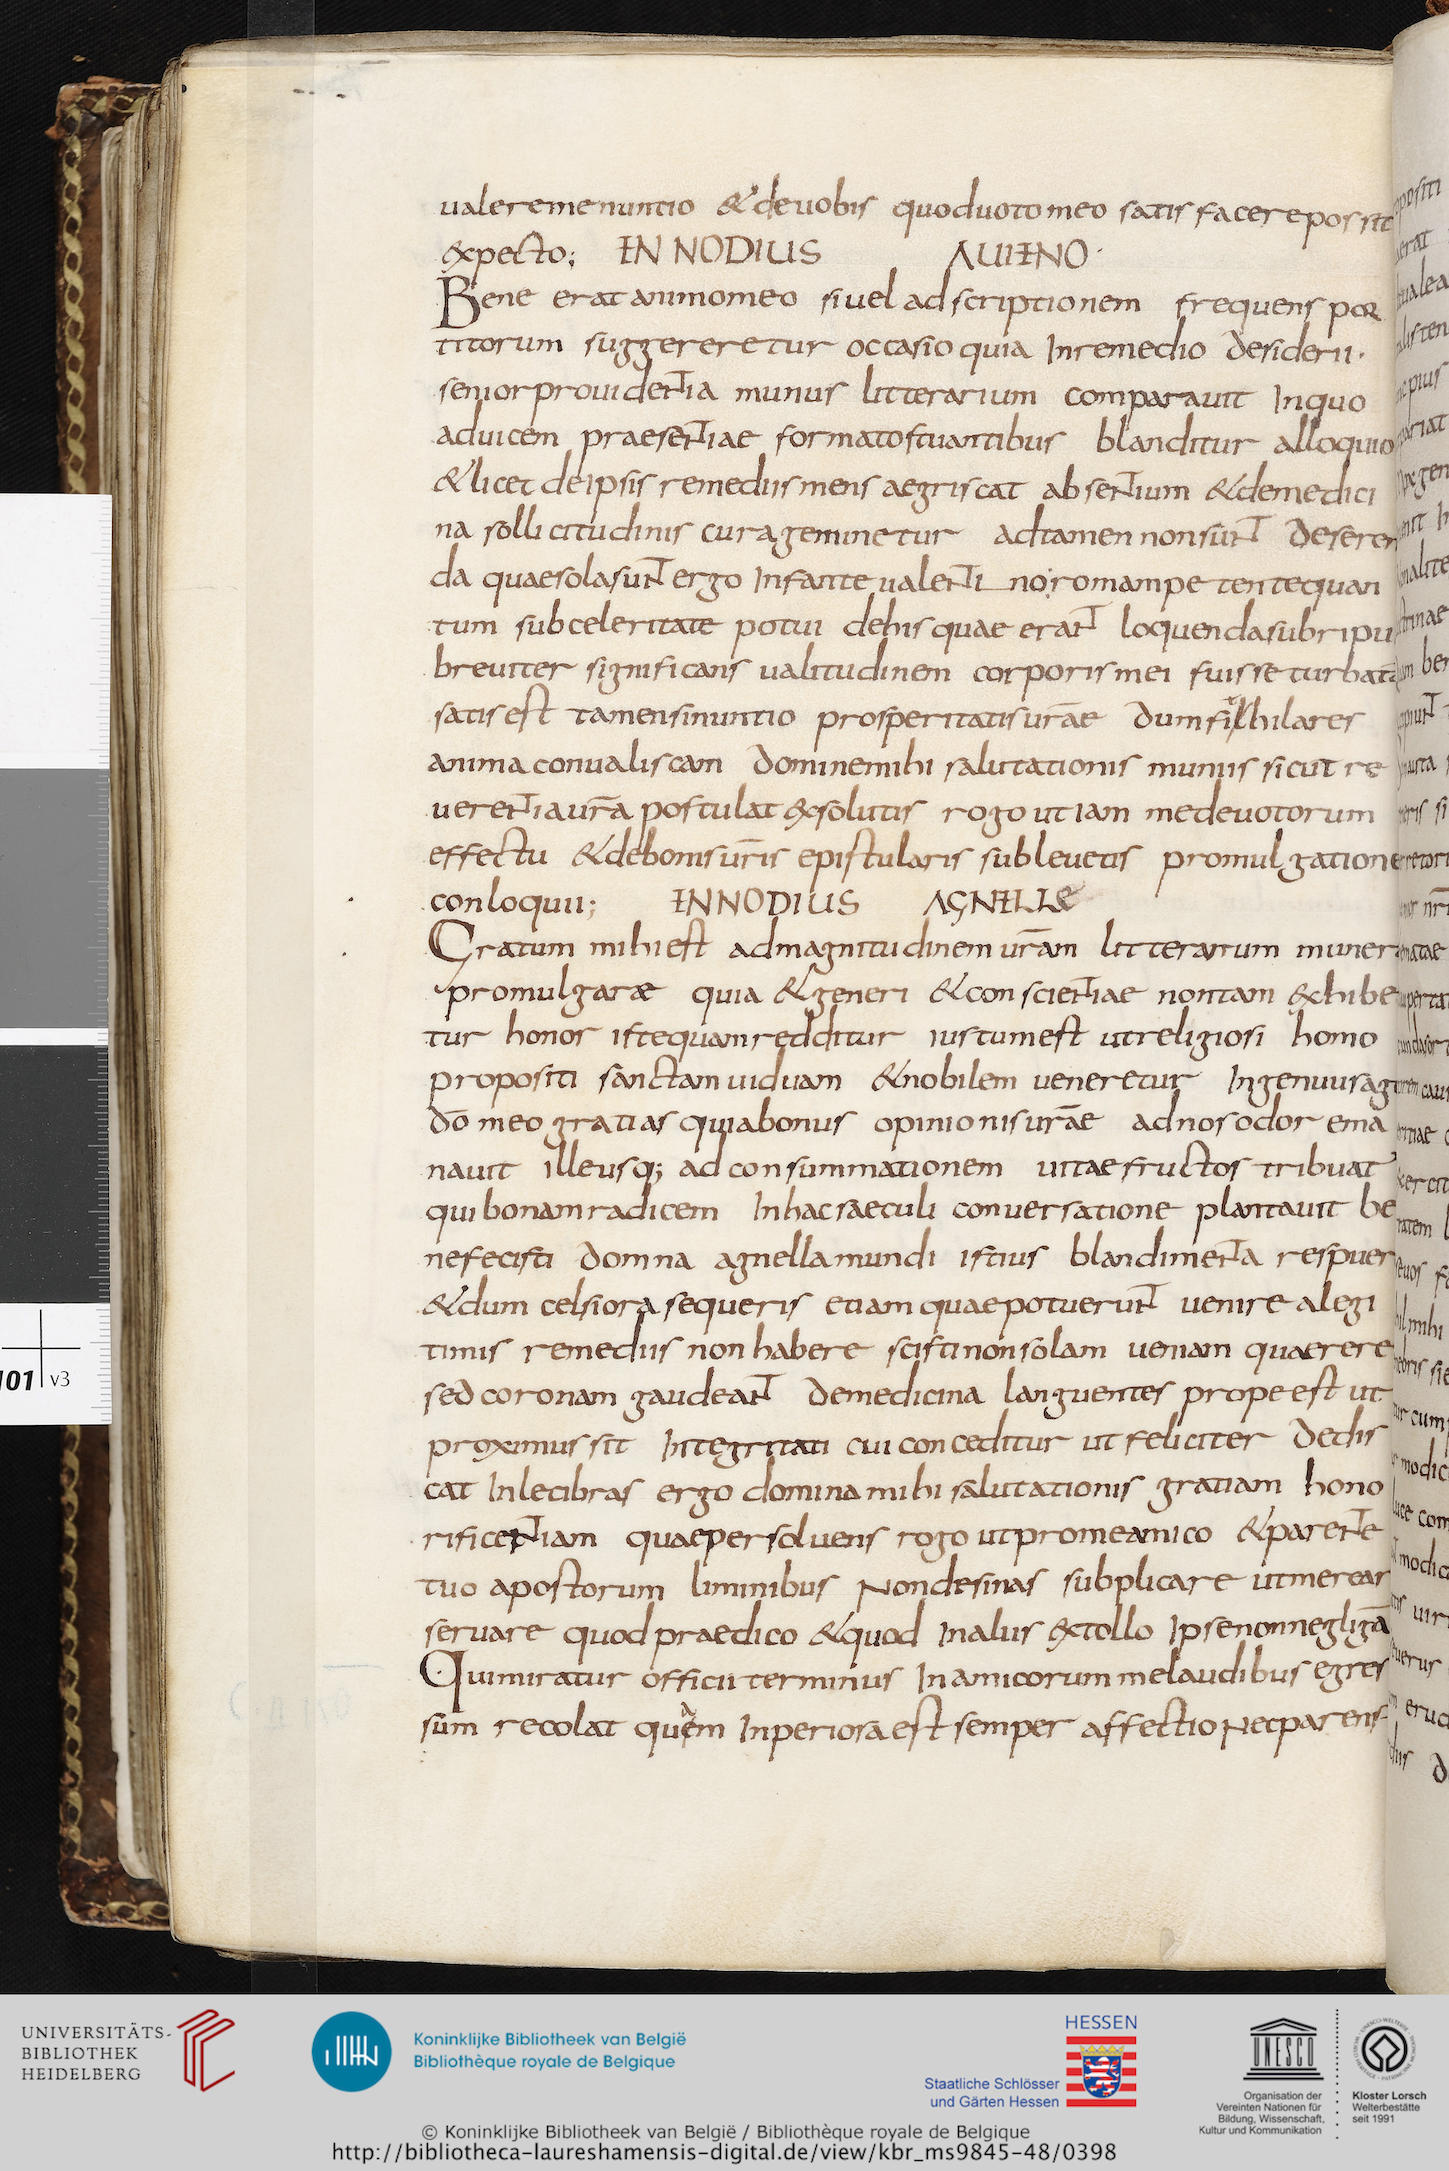 ualeremenuntio &deuobis quoduotomeo satisfacerepossit
expecto; ENNODIUS AUIENO·
Bene erat animomeo siuel adscriptionem frequens por
titorum suggereretur occasio quia Inremedio desiderii·
seniorprouidentia munus litterarium comparauit Inquo
aduicem praesentiae formatoftuantibus blanditur alloquio
&licet deIpsis remediis mens aegriscat absentium &demedici
na sollicitudinis curageminetur adtamen nonsunt deseren
da quaesolasunt ergo Infante ualenti noromampetentequan
tum subceleritate potui dehisquae erant loquendasubripu
breuiter significans ualitudinem corporismei fuisseturbatā
satisest tamensinuntio prosperitatisurāe dum hilares
animaconualiscam dominemihi salutationis muniis sicut re
uerentiaurā postulat exsolutis rogoutiam medeuotorum
effectu &debonisurīs epistularis subleuetis promulgatione
conloquii; ENNODIUS AGNELLe
Gratum mihiest admagnitudinem urām litterarum muner
promulgarae quia &generi &conscientiae nontam exhibe
tur honor istequamredditur iustumest utreligiosi homo
propositi sanctamuiduam &nobilem ueneretur Ingenuusag
dō meo gratias quiabonus opinionisurāe adnosodor ema
nauit illeusq; adconsummationem uitaefructos tribuat
quibonamradicem Inhacsaeculi conuersatione plantauit be
nefecisti domna agnellamundi istius blandimenta respuer
&dum celsiora sequeris etiamquaepotuerunt uenirealegi
timis remediis nonhabere scistinonsolam ueniam quaerere
sedcoronam gaudeant demedicina languentes propeest ut
proximussit Integritati cui conceditur ut feliciter dedis
cat Inlecibras ergo dominamihi salutationis gratiam hono
rificentiam quaepersoluens rogo utpromeamico &parente
tuo apostorum liminibus Nondesinas subplicare utmerear
seruare quodpraedico &quod Inalus extollo Ipsenonnegligā
Quimiratur officii terminus Inamicorummelaudibus egres
sum recolat quem Inperiosaest semper affectio Necparens
101 v3
UNIVERSITÄTS-
BIBLIOTHEK
HEIDELBERG
Koninklijke Bibliotheek van België
Bibliothèque royale de Belgique
HESSEN
Staatliche Schlösser
und Gärten Hessen
UNESCO
Organisation der
Vereinten Nationen für
Bildung, Wissenschaft,
Kultur und Kommunikation
Kloster Lorsch
Welterbestätte
seit 1991
© Koninklijke Bibliotheek van België / Bibliothèque royale de Belgique
http://bibliotheca-laureshamensis-digital.de/view/kbr_ms9845-48/0398